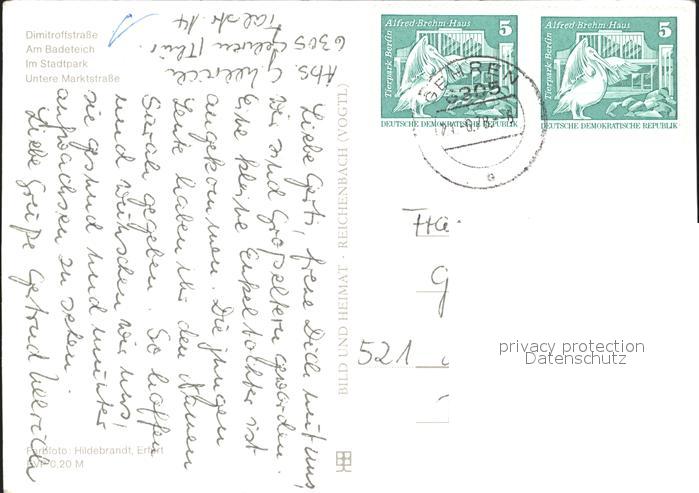 Dimitroffstraße
Am Badeteich
Im Stadtpark
Untere Marktstraße
Abs. G.
6305 Gehren / Thür.
Talstr. 14
Liebe Gerti, freue Dich mit uns,
wir sind Großeltern geworden.
Eine kleine Enkeltochter ist
angekommen. Die jungen
Leute haben ihr den Namen
Sarah gegeben. So hoffen
und wünschen wir uns,
sie gesund und munter
aufwachsen zu sehen.
Liebe Grüße Gertrud
Farbfoto: Hildebrandt, Erfurt
EVP 0,20 M
BILD UND HEIMAT · REICHENBACH (VOGTL)
Alfred-Brehm-Haus 5
Tierpark Berlin
DEUTSCHE DEMOKRATISCHE REPUBLIK
Alfred-Brehm-Haus 5
Tierpark Berlin
DEUTSCHE DEMOKRATISCHE REPUBLIK
GEHREN
6305
G
521
privacy protection
Datenschutz